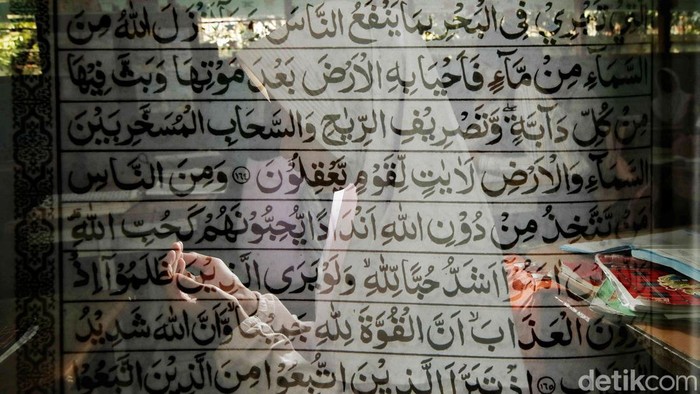 تَجْرِيْ فِى الْبَحْرِ بِمَا يَنْفَعُ النَّاسَ اللّٰهُ مِنَ
السَّمَآءِ مِنْ مَّآءٍ فَاَحْيَا بِهِ الْاَرْضَ بَعْدَ مَوْتِهَا وَبَثَّ فِيْهَا
مِنْ كُلِّ دَآبَّةٍ ۖ وَّتَصْرِيْفِ الرِّيٰحِ وَالسَّحَابِ الْمُسَخَّرِ بَيْنَ
السَّمَآءِ وَالْاَرْضِ لَاٰيٰتٍ لِّقَوْمٍ يَّعْقِلُوْنَ ١٦٤ وَمِنَ النَّاسِ
مَنْ يَّتَّخِذُ مِنْ دُوْنِ اللّٰهِ اَنْدَادًا يُّحِبُّوْنَهُمْ كَحُبِّ اللّٰهِ ۗ
اَشَدُّ حُبًّا لِّلّٰهِ ۙ وَلَوْ يَرَى الَّذِيْنَ ظَلَمُوْٓا اِذْ
يَرَوْنَ الْعَذَابَ ۙ اَنَّ الْقُوَّةَ لِلّٰهِ جَمِيْعًا ۙ وَّاَنَّ اللّٰهَ شَدِيْدُ
١٦٥ اِذْ تَبَرَّاَ الَّذِيْنَ اتُّبِعُوْا مِنَ الَّذِيْنَ اتَّبَعُوْا
detikcom